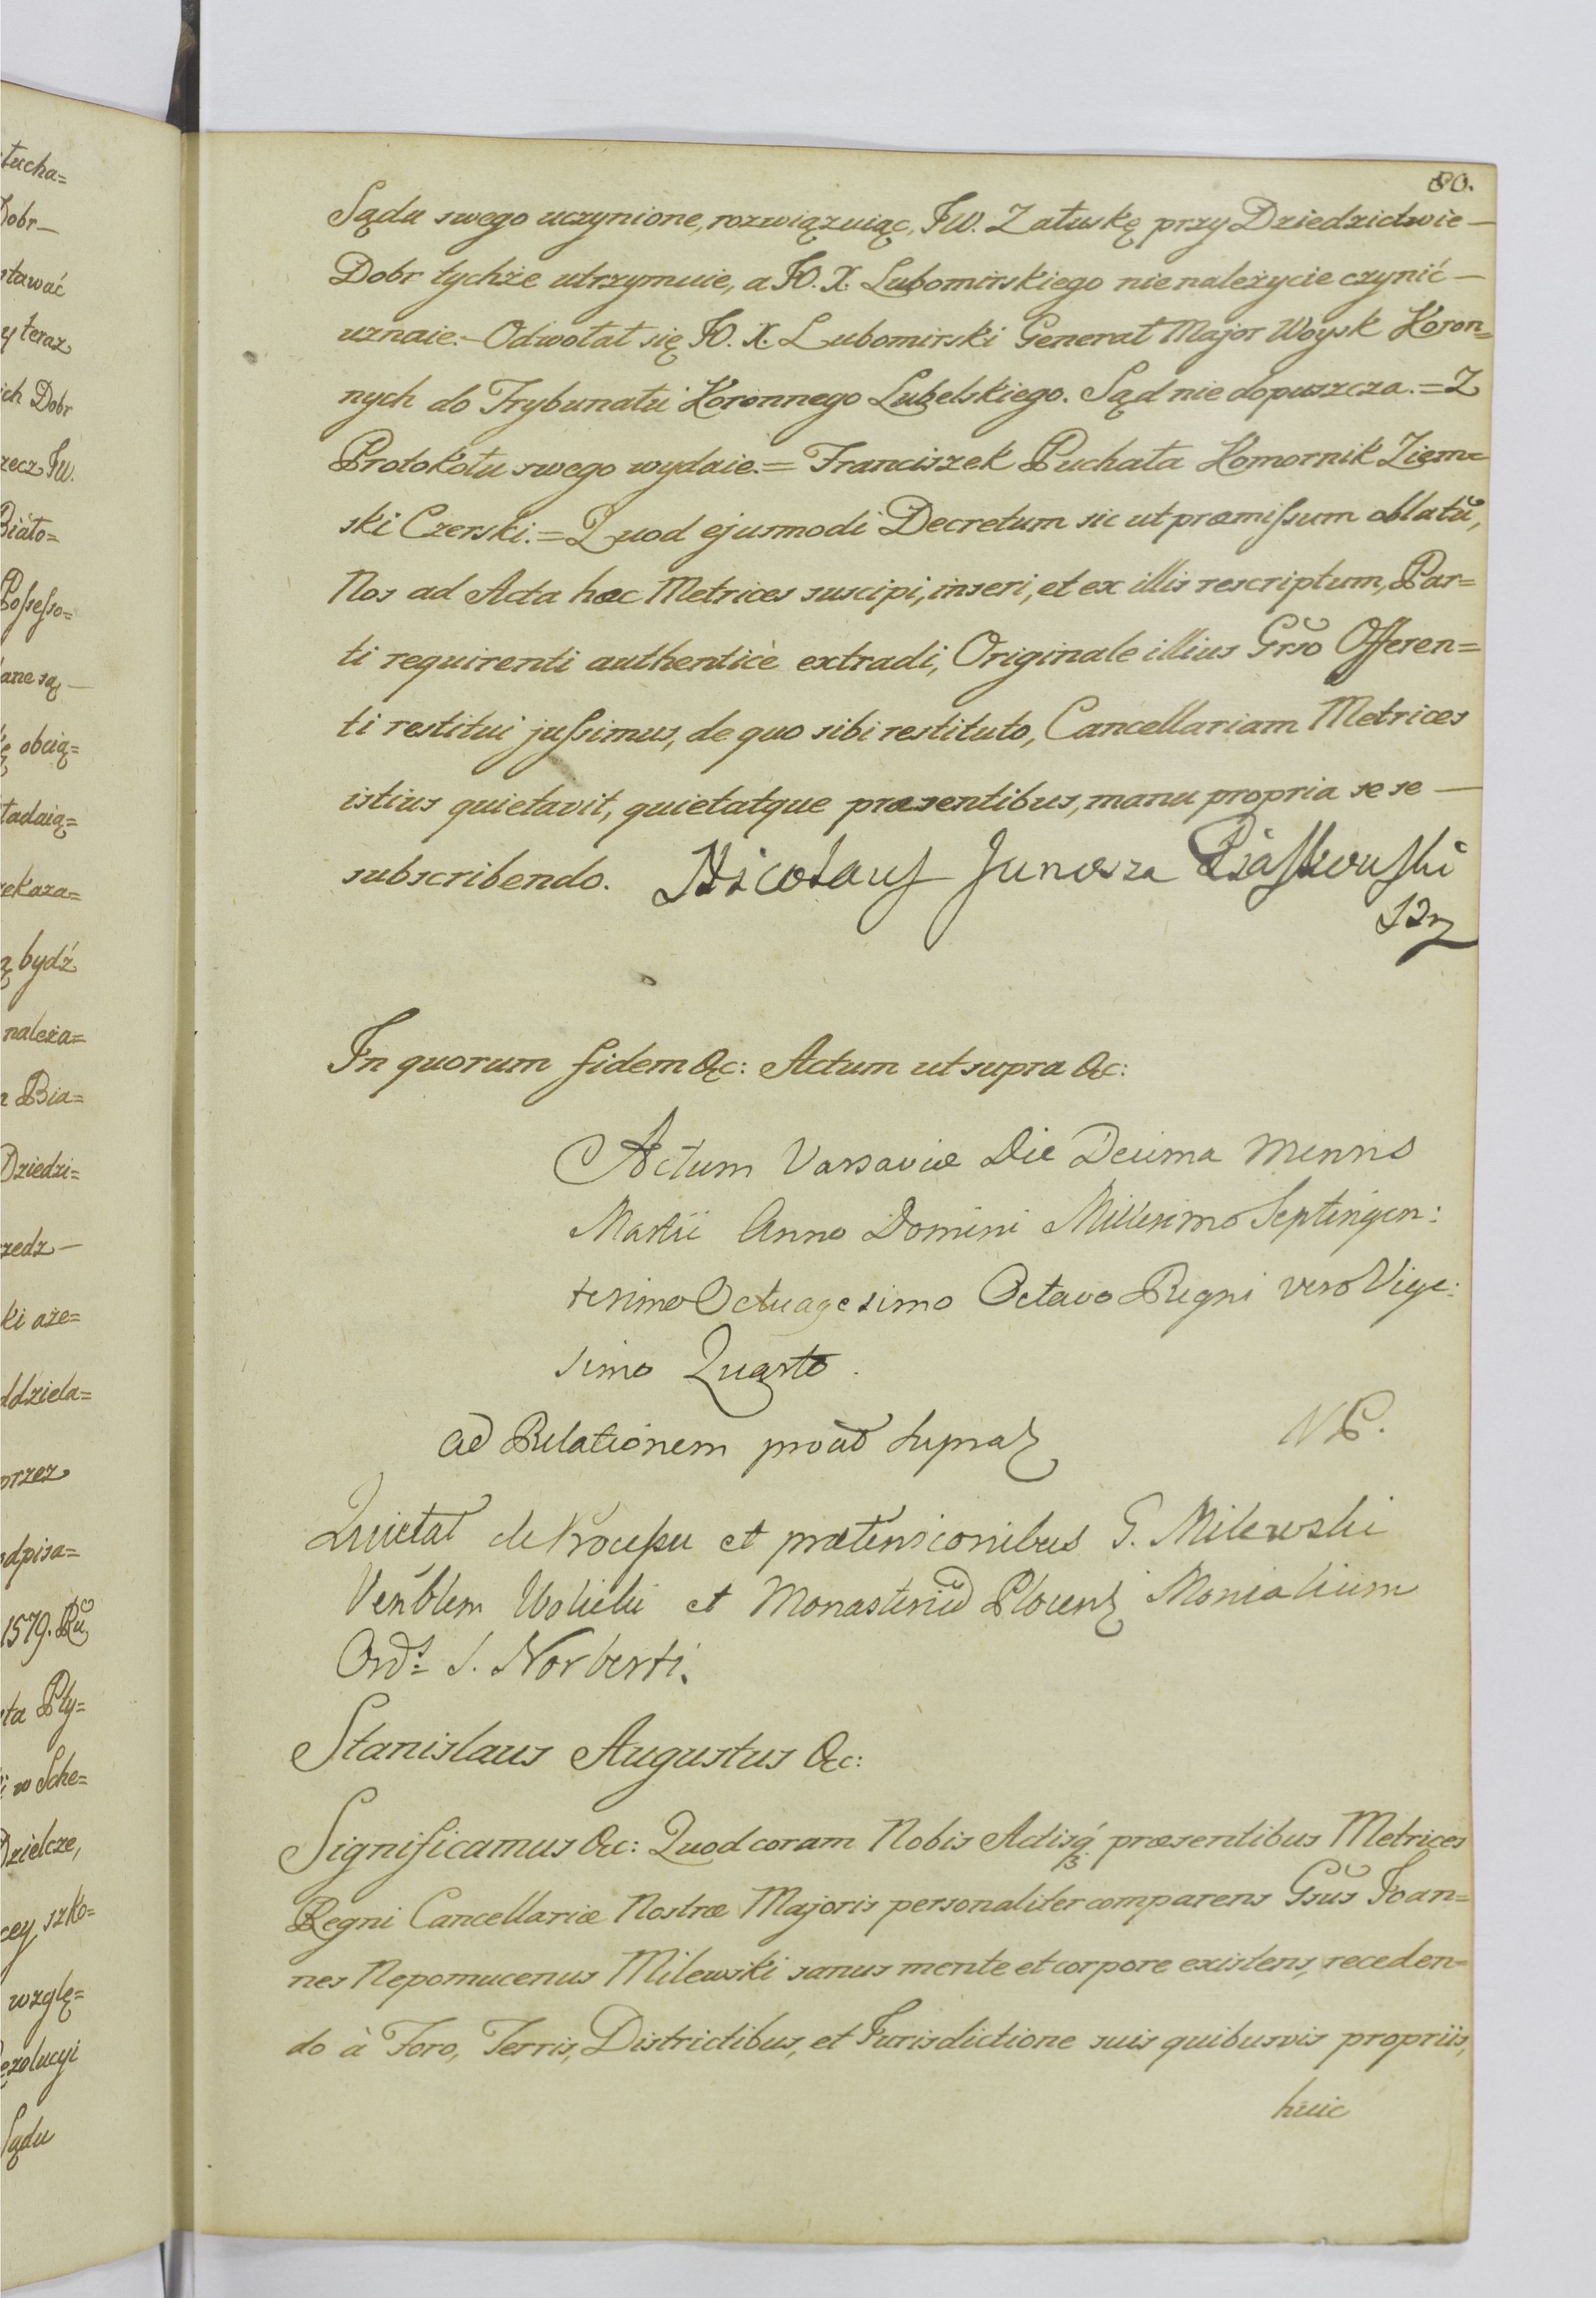 80.
Sądu swego uczynione, rozwiązuiąc, JW. Załuskę przy Dziedzictwie —
Dobr tychże utrzymuie, a JO. X. Lubomirskiego nienależycie czynić —
uznaie. – Odwołał się JO. X. Lubomirski Generał Major Woysk Koron=
nych do Trybunału Koronnego Lubelskiego. Sąd nie dopuszcza. = Z
Protokołu swego wydaie. = Franciszek Puchała Komornik Ziem=
ski Czerski. = Quod ejusmodi Decretum sic ut præmissum oblatũ,
Nos ad Acta hæc Metrices suscipi, inseri, et ex illis rescriptum, Par=
ti requirenti authenticè extradi, Originale illius Grso Offeren=
ti restitui jussimus, de quo sibi restituto, Cancellariam Metrices
istius quietavit, quietatque præsentibus, manu propria se se —
subscribendo. Nicolaus Junosza Piaskowski
In quorum fidem &c: Actum ut supra &c:
Actum Varsaviæ Die Decima Mensis
Martii Anno Domini Millesimo Septingen:
tesimo Octuagesimo Octavo Regni vero Vige:
simo Quarto.
ad Relationem prout supra
Quietat de Processu et prætensionibus G. Milewski
Venblem Wolicki et Monasteriũ Plocens Monialium
Ords S. Norberti.
Stanislaus Augustus &c:
Significamus &c: Quod coram Nobis Actisq́ præsentibus Metrices
Regni Cancellariæ Nostræ Majoris personaliter comparens Gsus Joan=
nes Nepomucenus Milewski sanus mente et corpore existens, receden=
do à Foro, Terris, Districtibus, et Jurisdictione suis quibusvis propriis,
huic
tucha=
Dobr —
stawać
y teraz
ich Dobr
rzecz JW.
Biało=
Possesso=
ane są —
obcią=
tadaią=
rekaza=
ą bydź
należa=
z Bia=
Dziedzi=
rzedz —
ki aże=
ddziela=
przez
odpisa=
1579. Rũ
ta Pły=
i w Sche=
Dzielcze,
cey szko=
wzglę=
ezolucyi
Sądu